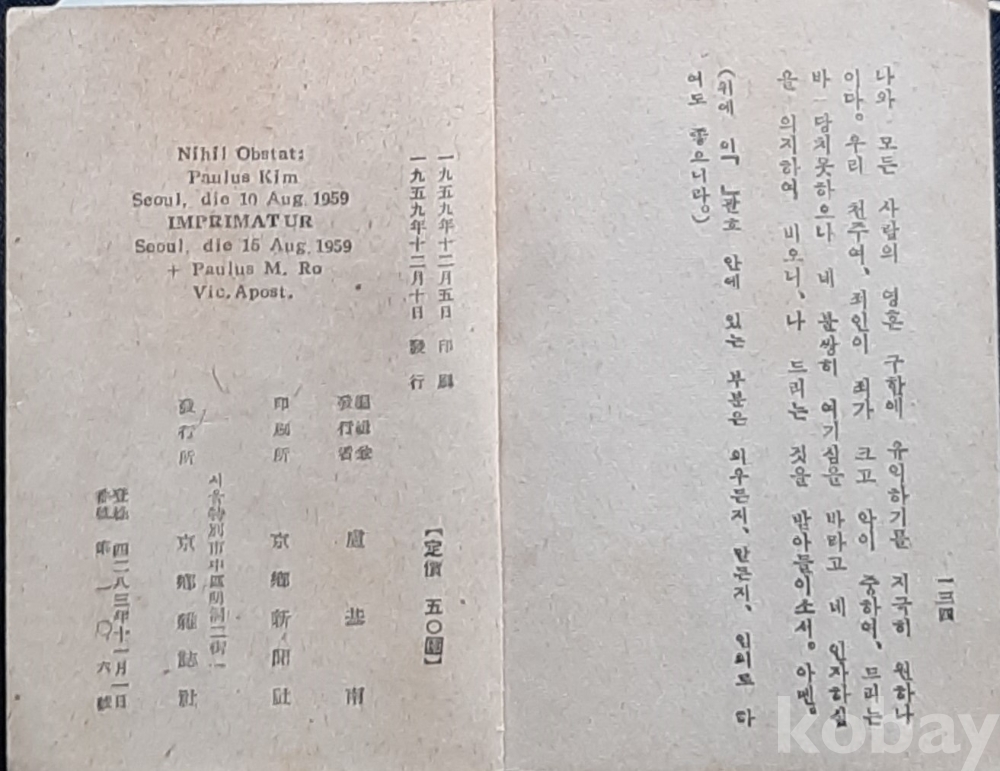 一三四
나와 모든 사람의 영혼 구함에 유익하기를 지극히 원하나
이다。우리 천주여、죄인이 죄가 크고 악이 중하여、드리는
바 당치못하으나 네 불쌍히 여기심을 바라고 네 인자하심
을 의지하여 비오니、나 드리는 것을 받아들이소서。아멘。
(위에 이「 」관호 안에 있는 부분은 외우든지、말든지、임의로 하
여도 좋으니라。)
Nihil Obstat:
Paulus Kim
Seoul, die 10 Aug. 1959
IMPRIMATUR
Seoul, die 15 Aug. 1959
+ Paulus M. Ro
Vic. Apost.
一九五九年十二月五日 印刷
一九五九年十二月十日 發行
【定價 五〇圜】
編輯兼
發行者 盧基南
印刷所 京鄕新聞社
서울特別市中區明洞二街一
發行所 京鄕雜誌社
登錄 四二八三年十一月一日
番號 第一〇六號
kobay